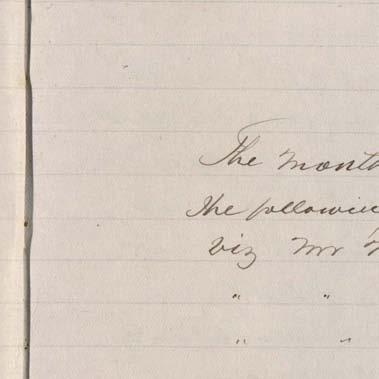 The month
the followin
viz Mr
" "
" "